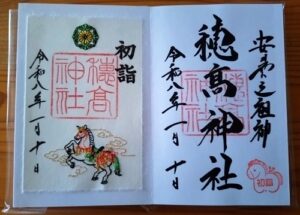 安曇之祖神
穂髙神社
穂髙神社
令和八年一月十日
初詣
初詣
穂髙神社
令和八年一月十日